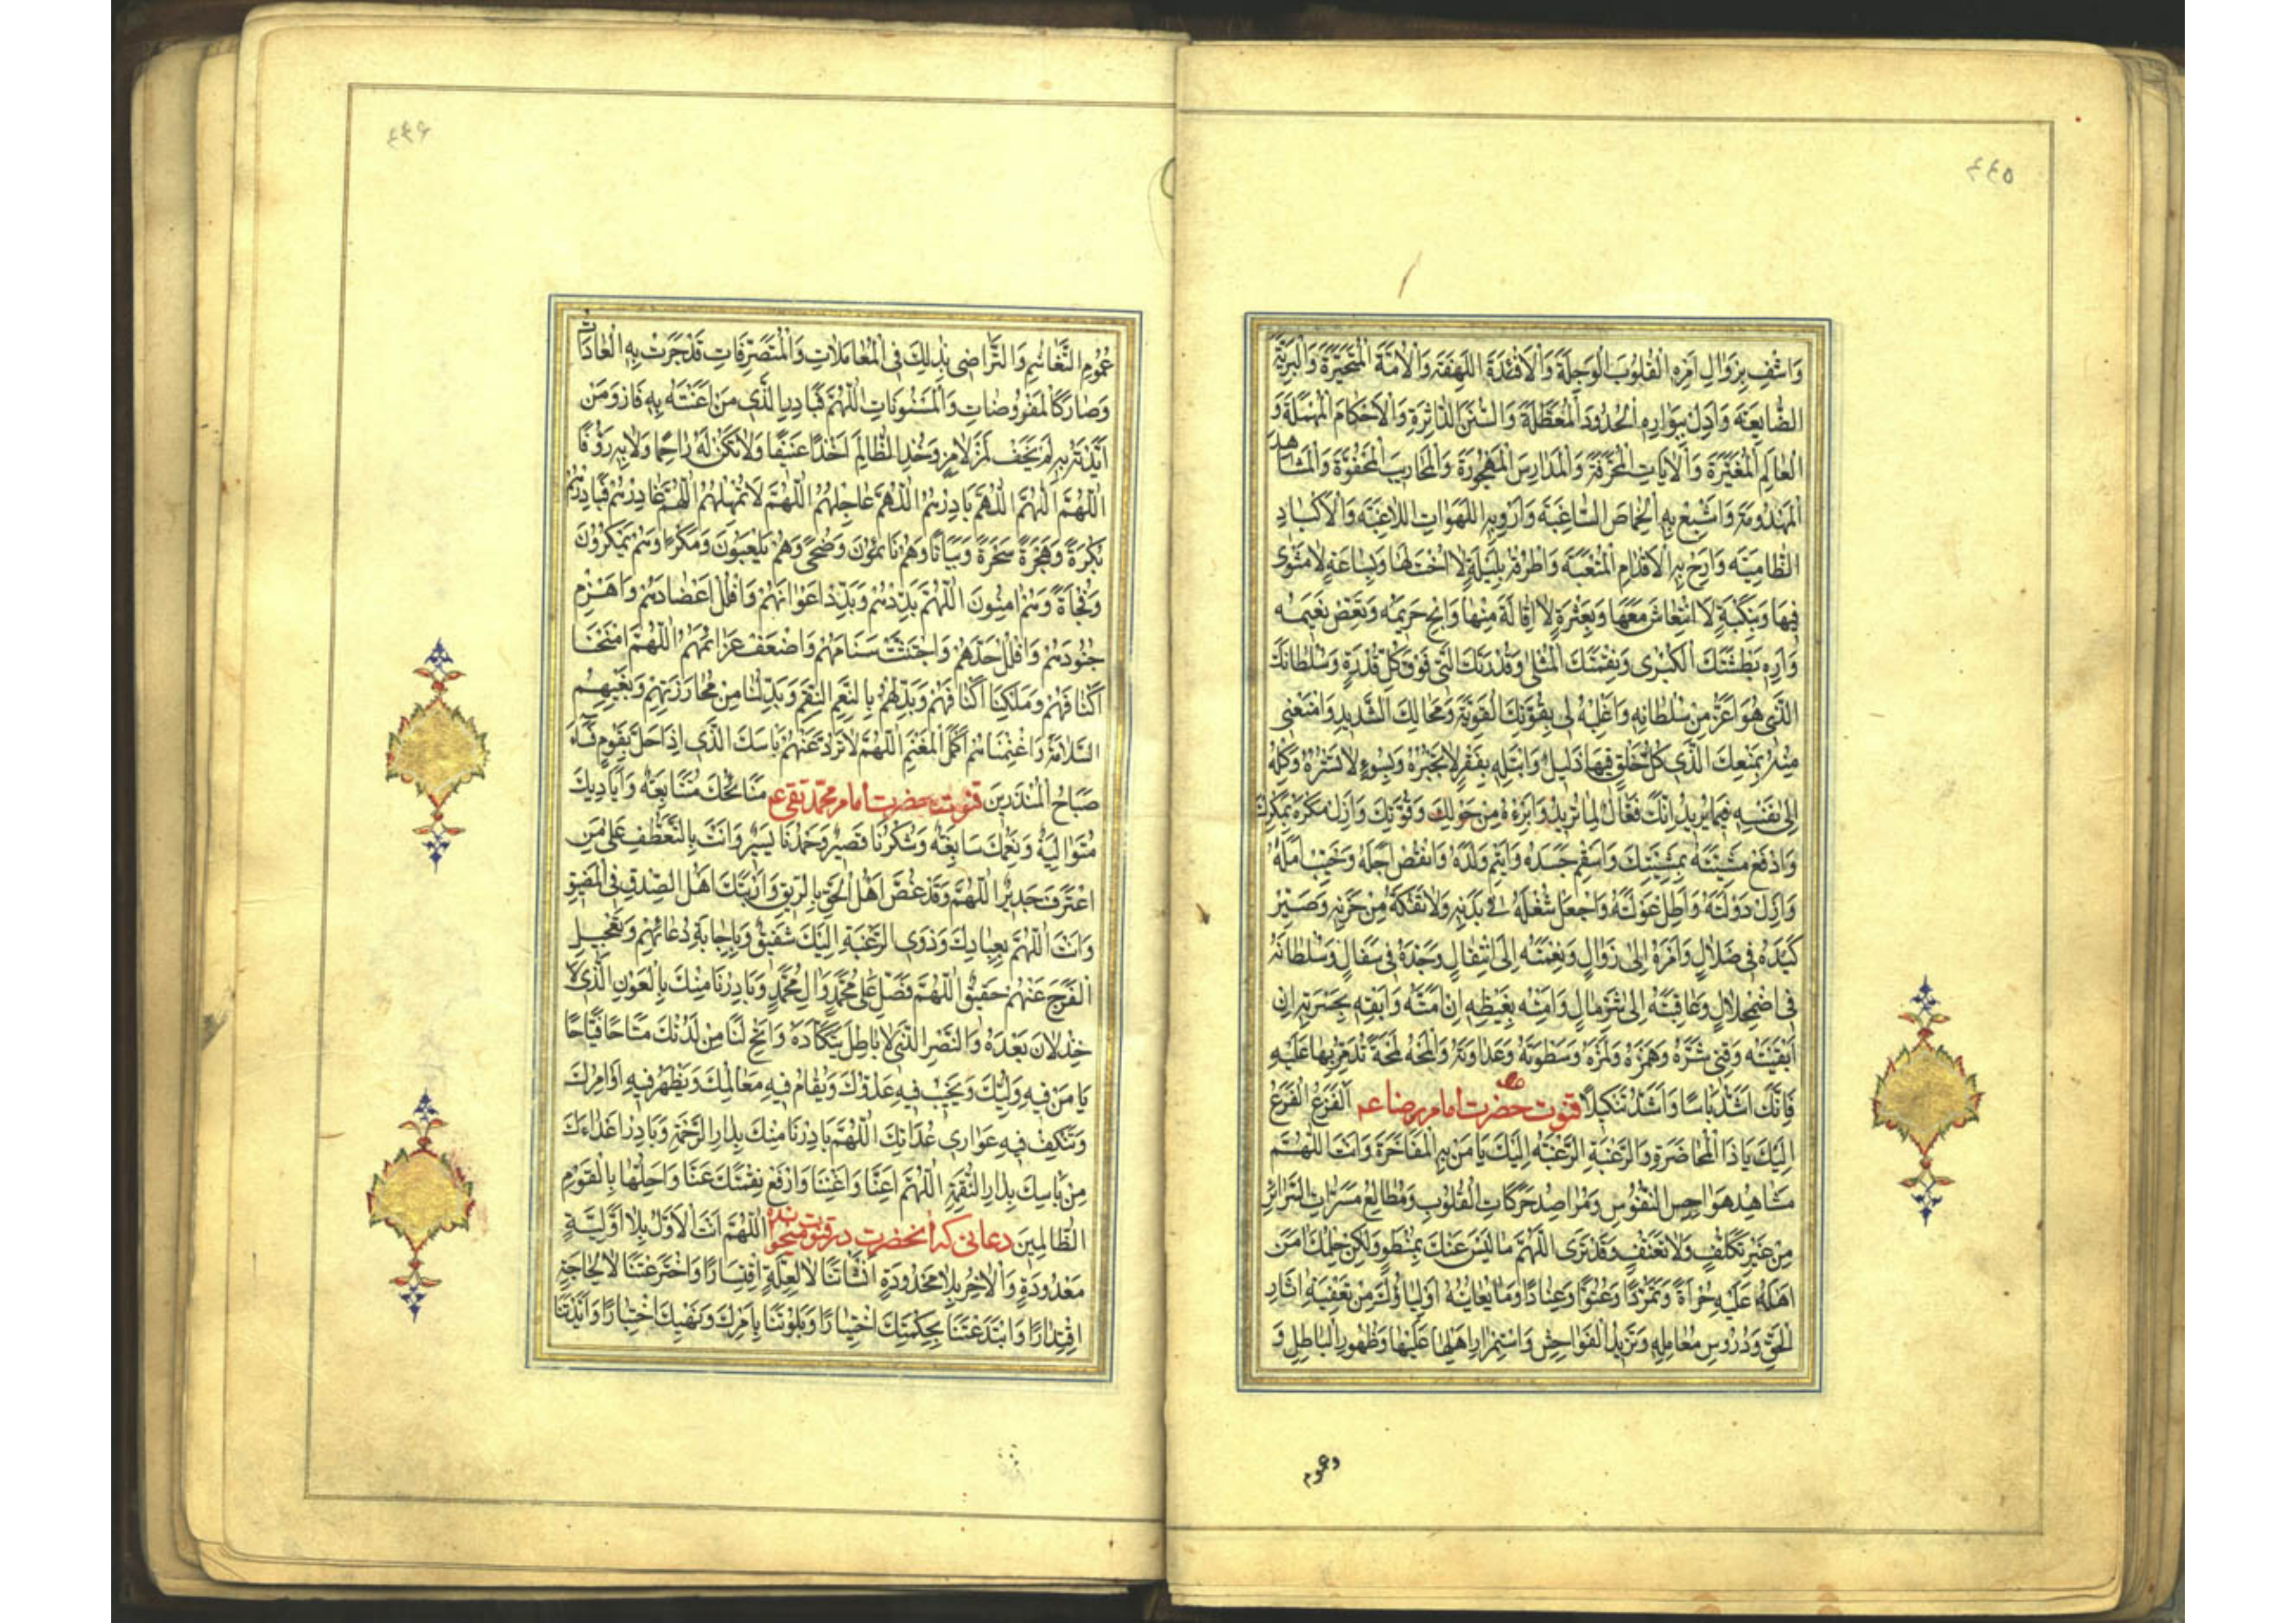 ٤٤٥
وَاشْفِ بِزَوَالِ اَمْرِهِ الْقُلُوبَ الْوَجِلَةَ وَالْاَفْئِدَةَ اللَّهِفَةَ وَالْاُمَّةَ الْمُتَحَيِّرَةَ وَالْبَرِيَّةَ
الضَّايِعَةَ وَاَدِلْ بِبَوَارِهِ الْحُدُودَ الْمُعَطَّلَةَ وَالسُّنَنَ الدَّاثِرَةِ وَالْاَحْكَامَ الْمُهْمَلَةَ وَ
الْمَعَالِمَ الْمُغَيَّرَةَ وَالْاٰيَاتِ الْمُحَرَّفَةَ وَالْمَدَارِسَ الْمَهْجُورَةَ وَالْمَحَارِيبَ الْمَجْفُوَّةَ وَالْمَشَاهِدَ
الْمَهْدُومَةَ وَاَشْبِعْ بِهِ الْخِمَاصَ السَّاغِبَةَ وَاَرْوِ بِهِ اللَّهَوَاتِ اللَّاغِبَةَ وَالْاَكْبَادِ
الظَّامِيَةَ وَاَرِحْ بِهِ الْاَقْدَامِ الْمُتْعَبَةَ وَاطْرُقْهُ بِلَيْلَةٍ لَا اُخْتَ لَهَا وَبِسَاعَةٍ لَا مَثْوٰى
فِيهَا وَبِنَكْبَةٍ لَا انْتِعَاشَ مَعَهَا وَبِعَثْرَةٍ لَا اِقَالَةَ مِنْهَا وَاَبِحْ حَرِيمَهُ وَنَغِّصْ نَعِيمَهُ
وَاَرِهِ بَطْشَتَكَ الْكُبْرٰى وَنِقْمَتَكَ الْمُثْلٰى وَقُدْرَتَكَ الَّتِي فَوْقَ كُلِّ قُدْرَةٍ وَسُلْطَانَكَ
الَّذِي هُوَ اَعَزُّ مِنْ سُلْطَانِهِ وَاغْلِبْهُ لِي بِقُوَّتِكَ الْقَوِيَّةِ وَمَحَالِكَ الشَّدِيدِ وَامْنَعْنِي
مِنْهُ بِمَنْعِكَ الَّذِي كُلُّ خَلْقٍ فِيهَا ذَلِيلٌ وَابْتَلِهِ بِفَقْرٍ لَا تَجْبُرُهُ وَبِسُوءٍ لَا تَسْتُرُهُ وَكِلْهُ
اِلٰى نَفْسِهِ فِيمَا يُرِيدُ اِنَّكَ فَعَّالٌ لِمَا تُرِيدُ وَابْرَءْهُ مِنْ حَوْلِكَ وَقُوَّتِكَ وَاَزِلْ مَكْرَهُ بِمَكْرِكَ
وَادْفَعْ مَشِيَّتَهُ بِمَشِيَّتِكَ وَاَسْقِمْ جَسَدَهُ وَاَيْتِمْ وَلَدَهُ وَانْقُصْ اَجَلَهُ وَخَيِّبْ اَمَلَهُ
وَاَزِلْ دَوْلَتَهُ وَاَطِلْ عَوْلَتَهُ وَاجْعَلْ شُغْلَهُ فِي بَدَنِهِ وَلَا تَفُكَّهُ مِنْ حُزْنِهِ وَصَيِّرْ
كَيْدَهُ فِي ضَلَالٍ وَاَمْرَهُ اِلٰى زَوَالٍ وَنِعْمَتَهُ اِلَى انْتِقَالٍ وَجَدَّهُ فِي سَفَالٍ وَسُلْطَانَهُ
فِي اضْمِحْلَالٍ وَعَاقِبَتَهُ اِلٰى شَرِّ مَاٰلٍ وَاَمِتْهُ بِغَيْظِهِ اِنْ اَمَتَّهُ وَاَبْقِهِ بِحَسْرَتِهِ اِنْ
اَبْقَيْتَهُ وَقِنِي شَرَّهُ وَهَمْزَهُ وَلَمْزَهُ وَسَطْوَتَهُ وَعَدَاوَتَهُ وَالْمَحْهُ لَمْحَةً تُدَمِّرُ بِهَا عَلَيْهِ
فَاِنَّكَ اَشَدُّ بَاْسًا وَاَشَدُّ تَنْكِيلًا قنوت حضرت امام رضا ع اَلْفَزَعُ الْفَزَعُ
اِلَيْكَ يَا ذَا الْمُحَاضَرَةِ وَالرَّغْبَةُ الرَّغْبَةُ اِلَيْكَ يَا مَنْ بِهِ الْمُفَاخَرَةُ وَاَنْتَ اللّٰهُمَّ
مُشَاهِدُ هَوَاجِسِ النُّفُوسِ وَمُرَاصِدُ حَرَكَاتِ الْقُلُوبِ وَمُطَالِعُ مَسَرَّاتِ السَّرَائِرِ
مِنْ غَيْرِ تَكَلُّفٍ وَلَا تَعَسُّفٍ وَقَدْ تَرَى اللّٰهُمَّ مَا لَيْسَ عَنْكَ بِمُنْطَوٍ وَلٰكِنَّ حِلْمَكَ اٰمَنَ
اَهْلَهُ عَلَيْهِ جُرْاَةً وَتَمَرُّدًا وَعُتُوًّا وَعِنَادًا وَمَا يُعَايِنُهُ اَوْلِيَاؤُكَ مِنْ تَعْفِيَةِ اٰثَارِ
الْحَقِّ وَدُرُوسِ مَعَالِمِهِ وَتَزَيُّدِ الْفَوَاحِشِ وَاسْتِمْرَارِ اَهْلِهَا عَلَيْهَا وَظُهُورِ الْبَاطِلِ وَ
وعموم
٤٤٦
عُمُومِ التَّغَاشُمِ وَالتَّرَاضِي بِذٰلِكَ فِي الْمُعَامَلَاتِ وَالْمُتَصَرِّفَاتِ قَدْ جَرَتْ بِهِ الْعَادَاتُ
وَصَارَ كَالْمَفْرُوضَاتِ وَالْمَسْنُونَاتِ اللّٰهُمَّ فَبَادِرِ الَّذِي مَنْ اَعَنْتَهُ بِهِ فَازَ وَمَنْ
اَيَّدْتَهُ بِهِ لَمْ يَخَفْ لَمْزَ لَامِزٍ وَخُذِ الظَّالِمَ اَخْذًا عَنِيفًا وَلَا تَكُنْ لَهُ رَاحِمًا وَلَا بِهِ رَؤُفًا
اَللّٰهُمَّ اللّٰهُمَّ اللّٰهُمَّ بَادِرْهُمْ اَللّٰهُمَّ عَاجِلْهُمْ اَللّٰهُمَّ لَا تُمْهِلْهُمْ اَللّٰهُمَّ غَادِرْهُمْ
بُكْرَةً وَهَجْرَةً سَحَرَةً وَبَيَاتًا وَهُمْ نَائِمُونَ وَضُحًى وَهُمْ يَلْعَبُونَ وَمَكْرًا وَهُمْ يَمْكُرُونَ
وَفُجْاَةً وَهُمْ اٰمِنُونَ اَللّٰهُمَّ بَدِّدْهُمْ وَبَدِّدْ اَعْوَانَهُمْ وَافْلُلْ اَعْضَادَهُمْ وَاهْزِمْ
جُنُودَهُمْ وَافْلُلْ حَدَّهُمْ وَاجْتَثَّ سَنَامَهُمْ وَاَضْعِفْ عَزَائِمَهُمْ اَللّٰهُمَّ امْنَحْنَا
اَكْتَافَهُمْ وَمَلِّكْنَا اَكْنَافَهُمْ وَبَدِّلْهُمْ بِالنِّعَمِ النِّقَمَ وَبَدِّلْنَا مِنْ مُحَاذَرَتِهِمْ وَبَغْيِهِمُ
السَّلَامَةَ وَاَغْنِمْنَاهُمْ اَكْمَلَ الْمَغْنَمِ اَللّٰهُمَّ لَا تَرُدَّ عَنْهُمْ بَاْسَكَ الَّذِي اِذَا حَلَّ بِقَوْمٍ فَسَاءَ
صَبَاحُ الْمُنْذَرِينَ قنوت حضرت امام محمد تقى ع مَنَائِحُكَ مُتَتَابِعَةٌ وَاَيَادِيكَ
مُتَوَالِيَةٌ وَنِعَمُكَ سَابِغَةٌ وَشُكْرُنَا قَصِيرٌ وَحَمْدُنَا يَسِيرٌ وَاَنْتَ بِالتَّعَطُّفِ عَلٰى مَنِ
اعْتَرَفَ جَدِيرٌ اللّٰهُمَّ وَقَدْ غُصَّ اَهْلُ الْحَقِّ بِالرِّيقِ وَارْتَبَكَ اَهْلُ الصِّدْقِ فِي الْمَضِيقِ
وَاَنْتَ اللّٰهُمَّ بِعِبَادِكَ وَذَوِي الرَّغْبَةِ اِلَيْكَ شَفِيقٌ وَبِاِجَابَةِ دُعَائِهِمْ وَتَعْجِيلِ
الْفَرَجِ عَنْهُمْ حَقِيقٌ اللّٰهُمَّ فَصَلِّ عَلٰى مُحَمَّدٍ وَاٰلِ مُحَمَّدٍ وَبَادِرْنَا مِنْكَ بِالْعَوْنِ الَّذِي لَا
خِذْلَانَ بَعْدَهُ وَالنَّصْرِ الَّذِي لَا بَاطِلَ يَتَكَاَّدُهُ وَاَتِحْ لَنَا مِنْ لَدُنْكَ مَتَاحًا فَيَّاحًا
يَا مَنْ فِيهِ وَلِيُّكَ وَيَخِيبُ فِيهِ عَدُوُّكَ وَيُقَامُ فِيهِ مَعَالِمُكَ وَيَظْهَرُ فِيهِ اَوَامِرُكَ
وَتَنْكَفُّ فِيهِ عَوَارِي عُدَاتِكَ اَللّٰهُمَّ بَادِرْنَا مِنْكَ بِدَارِ الرَّحْمَةِ وَبَادِرْ اَعْدَاءَكَ
مِنْ بَاْسِكَ بِدَارِ النَّقِمَةِ اَللّٰهُمَّ اَعِنَّا وَاَغِثْنَا وَارْفَعْ نِقْمَتَكَ عَنَّا وَاَحِلَّهَا بِالْقَوْمِ
الظَّالِمِينَ دعائى كه انحضرت در قنوت ميخوانده اَللّٰهُمَّ اَنْتَ الْاَوَّلُ بِلَا اَوَّلِيَّةٍ
مَعْدُودَةٍ وَالْاٰخِرُ بِلَا مَحْدُودَةٍ اَنْشَاْتَنَا لَا لِعِلَّةٍ اقْتِسَارًا وَاخْتَرَعْتَنَا لَا لِحَاجَةٍ
اقْتِدَارًا وَابْتَدَعْتَنَا بِحِكْمَتِكَ اخْتِيَارًا وَبَلَوْتَنَا بِاَمْرِكَ وَنَهْيِكَ اخْتِبَارًا وَاَيَّدْتَنَا